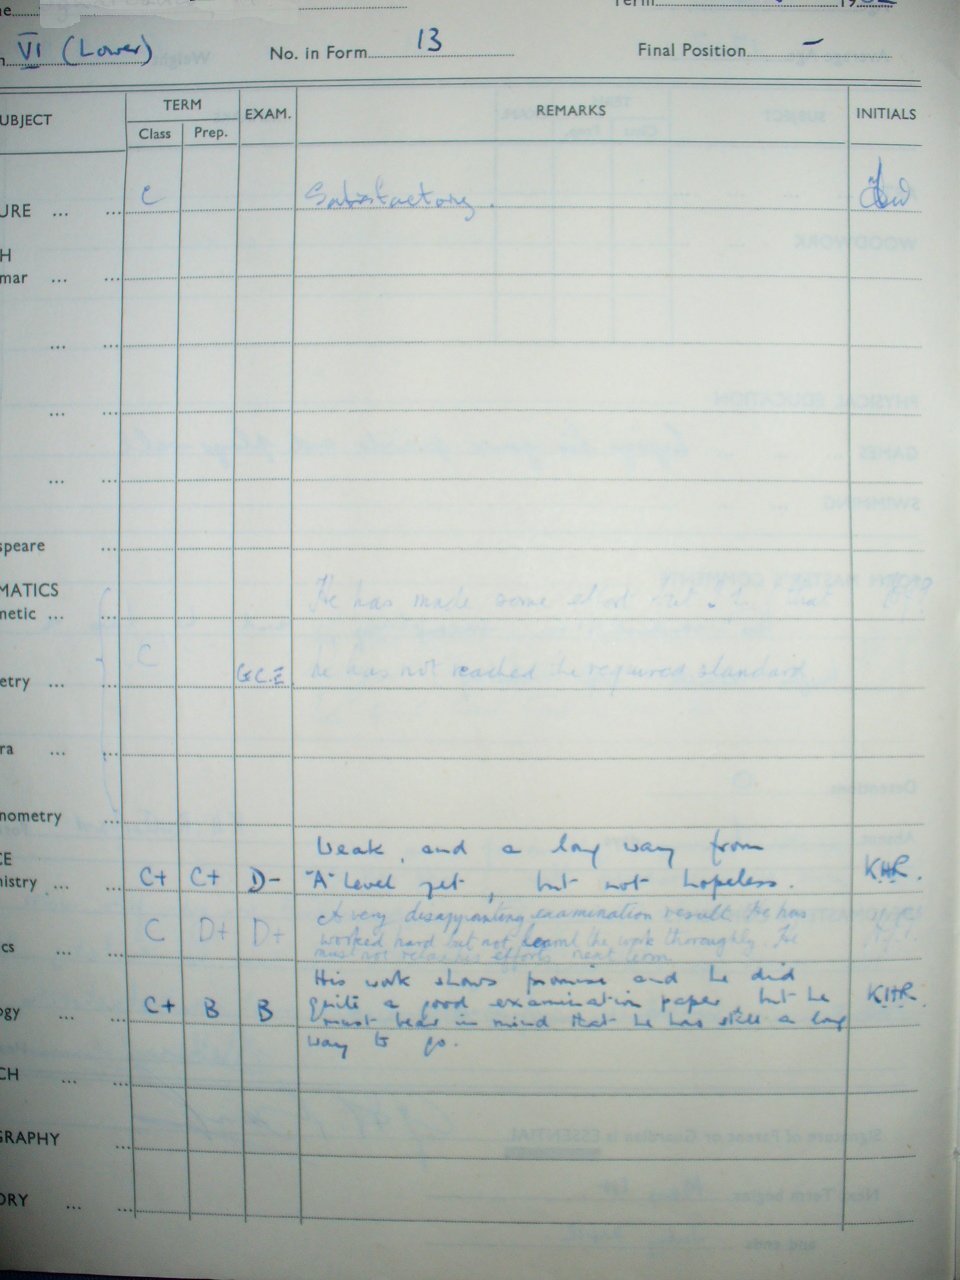 Term 19
VI (Lower) No. in Form 13 Final Position –
UBJECT TERM EXAM. REMARKS INITIALS
Class Prep.
URE ... ... C Satisfactory.
H
mar ... ...
... ...
... ...
... ...
speare ...
MATICS
He has made some effort but that
metic ... ...
C
he has not reached the required standard.
etry ... ... G.C.E
ra ... ...
nometry
CE
Weak, and a long way from
mistry ... ... C+ C+ D- "A" Level yet, but not hopeless. KHR.
A very disappointing examination result. He has
cs ... ... C D+ D+ worked hard but not learnt the work thoroughly. He
must not relax his efforts next term.
His work shows promise and he did
ogy ... ... C+ B B quite a good examination paper, but he KHR.
must bear in mind that he has still a long
way to go.
CH ... ...
GRAPHY ...
ORY ... ...